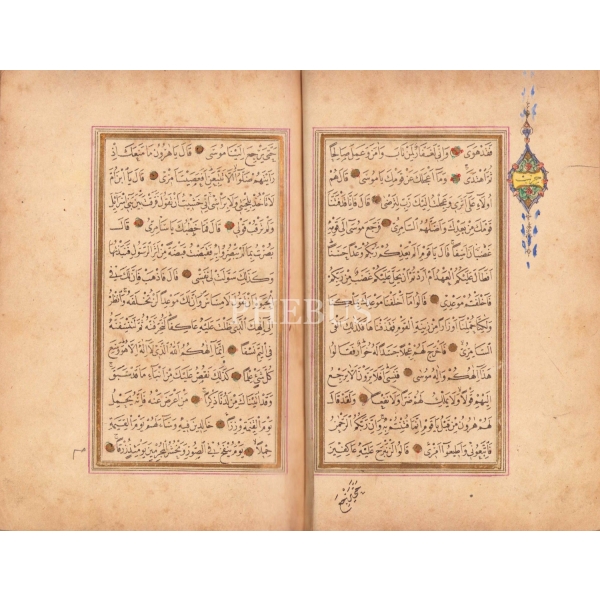 فَقَدْ هَوَى وَإِنِّي لَغَفَّارٌ لِمَنْ تَابَ وَآمَنَ وَعَمِلَ صَالِحًا
ثُمَّ اهْتَدَى وَمَا أَعْجَلَكَ عَنْ قَوْمِكَ يَا مُوسَى قَالَ هُمْ
أُولَاءِ عَلَى أَثَرِي وَعَجِلْتُ إِلَيْكَ رَبِّ لِتَرْضَى قَالَ فَإِنَّا قَدْ فَتَنَّا
قَوْمَكَ مِنْ بَعْدِكَ وَأَضَلَّهُمُ السَّامِرِيُّ فَرَجَعَ مُوسَى إِلَى قَوْمِهِ
غَضْبَانَ أَسِفًا قَالَ يَا قَوْمِ أَلَمْ يَعِدْكُمْ رَبُّكُمْ وَعْدًا حَسَنًا
أَفَطَالَ عَلَيْكُمُ الْعَهْدُ أَمْ أَرَدْتُمْ أَنْ يَحِلَّ عَلَيْكُمْ غَضَبٌ مِنْ رَبِّكُمْ
فَأَخْلَفْتُمْ مَوْعِدِي قَالُوا مَا أَخْلَفْنَا مَوْعِدَكَ بِمَلْكِنَا
وَلَكِنَّا حُمِّلْنَا أَوْزَارًا مِنْ زِينَةِ الْقَوْمِ فَقَذَفْنَاهَا فَكَذَلِكَ أَلْقَى
السَّامِرِيُّ فَأَخْرَجَ لَهُمْ عِجْلًا جَسَدًا لَهُ خُوَارٌ فَقَالُوا
هَذَا إِلَهُكُمْ وَإِلَهُ مُوسَى فَنَسِيَ أَفَلَا يَرَوْنَ أَلَّا يَرْجِعُ
إِلَيْهِمْ قَوْلًا وَلَا يَمْلِكُ لَهُمْ ضَرًّا وَلَا نَفْعًا وَلَقَدْ قَالَ
لَهُمْ هَرُونُ مِنْ قَبْلُ يَا قَوْمِ إِنَّمَا فُتِنْتُمْ بِهِ وَإِنَّ رَبَّكُمُ الرَّحْمَنُ
فَاتَّبِعُونِي وَأَطِيعُوا أَمْرِي قَالُوا لَنْ نَبْرَحَ عَلَيْهِ عَاكِفِينَ
حَتَّى يَرْجِعَ
حَتَّى يَرْجِعَ إِلَيْنَا مُوسَى قَالَ يَا هَرُونُ مَا مَنَعَكَ إِذْ
رَأَيْتَهُمْ ضَلُّوا أَلَّا تَتَّبِعَنِ أَفَعَصَيْتَ أَمْرِي قَالَ يَا ابْنَ أُمَّ
لَا تَأْخُذْ بِلِحْيَتِي وَلَا بِرَأْسِي إِنِّي خَشِيتُ أَنْ تَقُولَ فَرَّقْتَ بَيْنَ بَنِي إِسْرَائِيلَ
وَلَمْ تَرْقُبْ قَوْلِي قَالَ فَمَا خَطْبُكَ يَا سَامِرِيُّ قَالَ
بَصُرْتُ بِمَا لَمْ يَبْصُرُوا بِهِ فَقَبَضْتُ قَبْضَةً مِنْ أَثَرِ الرَّسُولِ فَنَبَذْتُهَا
وَكَذَلِكَ سَوَّلَتْ لِي نَفْسِي قَالَ فَاذْهَبْ فَإِنَّ لَكَ فِي
الْحَيَوةِ أَنْ تَقُولَ لَا مِسَاسَ وَإِنَّ لَكَ مَوْعِدًا لَنْ تُخْلَفَهُ وَانْظُرْ
إِلَى إِلَهِكَ الَّذِي ظَلْتَ عَلَيْهِ عَاكِفًا لَنُحَرِّقَنَّهُ ثُمَّ لَنَنْسِفَنَّهُ
فِي الْيَمِّ نَسْفًا إِنَّمَا إِلَهُكُمُ اللَّهُ الَّذِي لَا إِلَهَ إِلَّا هُوَ وَسِعَ
كُلَّ شَيْءٍ عِلْمًا كَذَلِكَ نَقُصُّ عَلَيْكَ مِنْ أَنْبَاءِ مَا قَدْ سَبَقَ
وَقَدْ آتَيْنَاكَ مِنْ لَدُنَّا ذِكْرًا مَنْ أَعْرَضَ عَنْهُ فَإِنَّهُ يَحْمِلُ
يَوْمَ الْقِيمَةِ وِزْرًا خَالِدِينَ فِيهِ وَسَاءَ لَهُمْ يَوْمَ الْقِيمَةِ
حِمْلًا يَوْمَ يُنْفَخُ فِي الصُّورِ وَنَحْشُرُ الْمُجْرِمِينَ يَوْمَئِذٍ زُرْقًا
PHEBUS